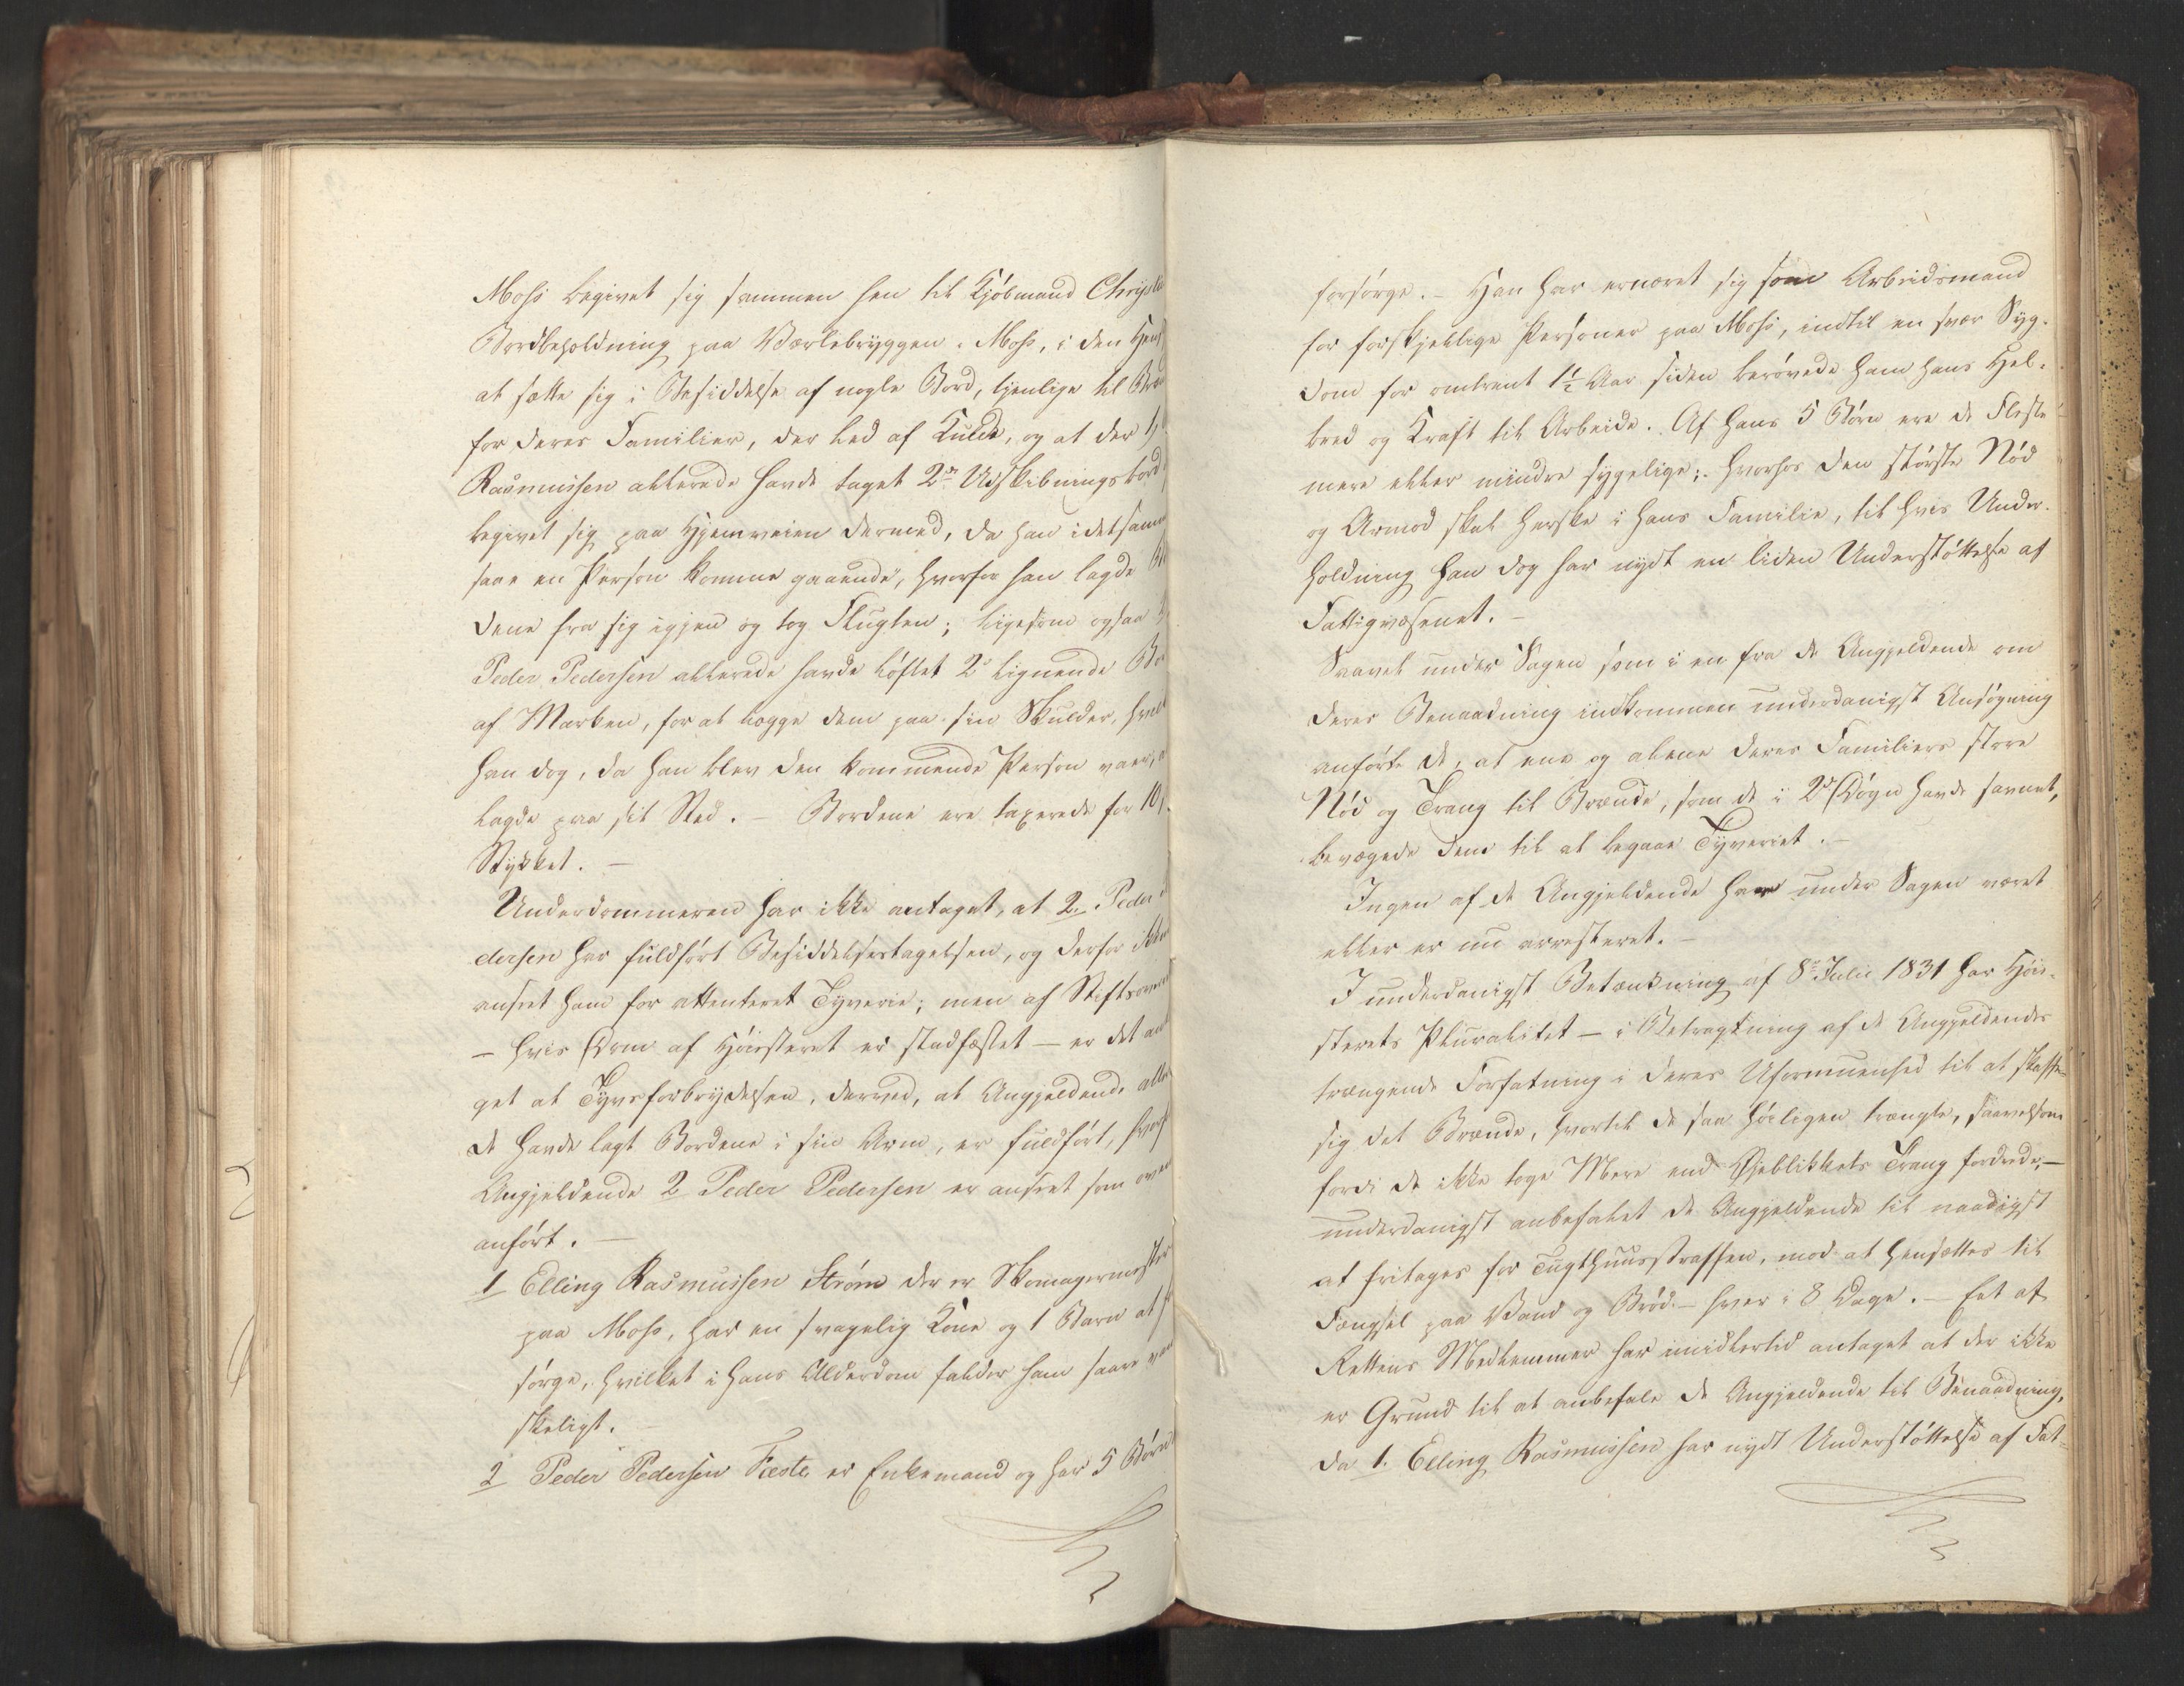 Moss begivet sig sammen hen til Kjöbmand Chryste
Bordbeholdning paa Værlebryggen i Moss, i den Hens
at sætte sig i Besiddelse af nogle Bord, tjenlige til Bræn
for deres Familier, der led af Kulde, og at der 1,
Rasmussen allerede havde taget 2de Udskibningsbord,
begivet sig paa Hjemveien dermed, da han i det samme
saae en Person komme gaaende, hvorfor han lagde Bor
dene fra sig igjen og tog Flugten; ligesom ogsaa 2
Peder Pedersen allerede havde löftet 2de lignende Bor
af Marken, for at lægge dem paa sin Skulder, hvilke
han dog, da han blev den kommende Person vaer,
lagde paa sit Sted. - Bordene ere taxerede for 10 s.
Stykket. -
Underdommeren har ikke antaget, at 2. Peder
dersen har fuldfört Besiddelsestagelsen, og derfor ikke
anseet ham for attenteret Tyverie; men af Stiftsover
- hvis Dom af Höiesteret er stadfæstet - er det anta
get at Tyvsforbrydelsen, derved, at Angjeldende alle
de havde lagt Bordene i sin Arm, er fuldfört, hvor
Angjeldende 2 Peder Pedersen er anseet som oven
anfört. -
1 Elling Rasmussen Ström der er Skomagermester
paa Moss, har en svagelig Kone og 1 Barn at for
sörge, hvilket i hans Alderdom falder ham saare van
skeligt. -
2 Peder Pedersen Fæste er Enkemand og har 5 Börn
forsörge. - Han har ernæret sig som Arbeidsmand
for forskjellige Personer paa Moss, indtil en svær Syg-
dom for omtrent 1½ Aar siden berövede ham hans Hel-
bred og Kraft til Arbeide. Af hans 5 Börn ere de Fleste
mere eller mindre sygelige; hvorhos den störste Nöd
og Armod skal herske i hans Familie, til hvis Under-
holdning han dog har nydt en liden Understöttelse af
Fattigvæsenet. -
Saavel under Sagen som i en fra de Angjeldende om
deres Benaadning indkommen underdanigst Ansögning
anförte de, at ene og alene deres Familiers store
Nöd og Trang til Brænde, som de i 2de Dögn havde savnet,
bevægede dem til at begaae Tyveriet. -
Ingen af de Angjeldende har under Sagen været
eller er nu arresteret. -
I underdanigst Betænkning af 8de Julii 1831 har Höie-
sterets Pluralitet - i Betragtning af de Angjeldendes
trængende Forfatning i deres Uformuenhed til at skaffe
sig det Brænde, hvortil de saa höiligen trængte, saavelsom
fordi de ikke toge Mere end Öjeblikkets Trang fordrede, -
underdanigst anbefalet de Angjeldende til naadigst
at fritages for Tugthuusstraffen, mod at hensættes til
Fængsel paa Vand og Bröd - hver i 8 Dage. - Eet af
Rettens Medlemmer har imidlertid antaget at der ikke
er Grund til at anbefale de Angjeldende til Benaadning,
da 1. Elling Rasmussen har nydt Understöttelse af Fat-